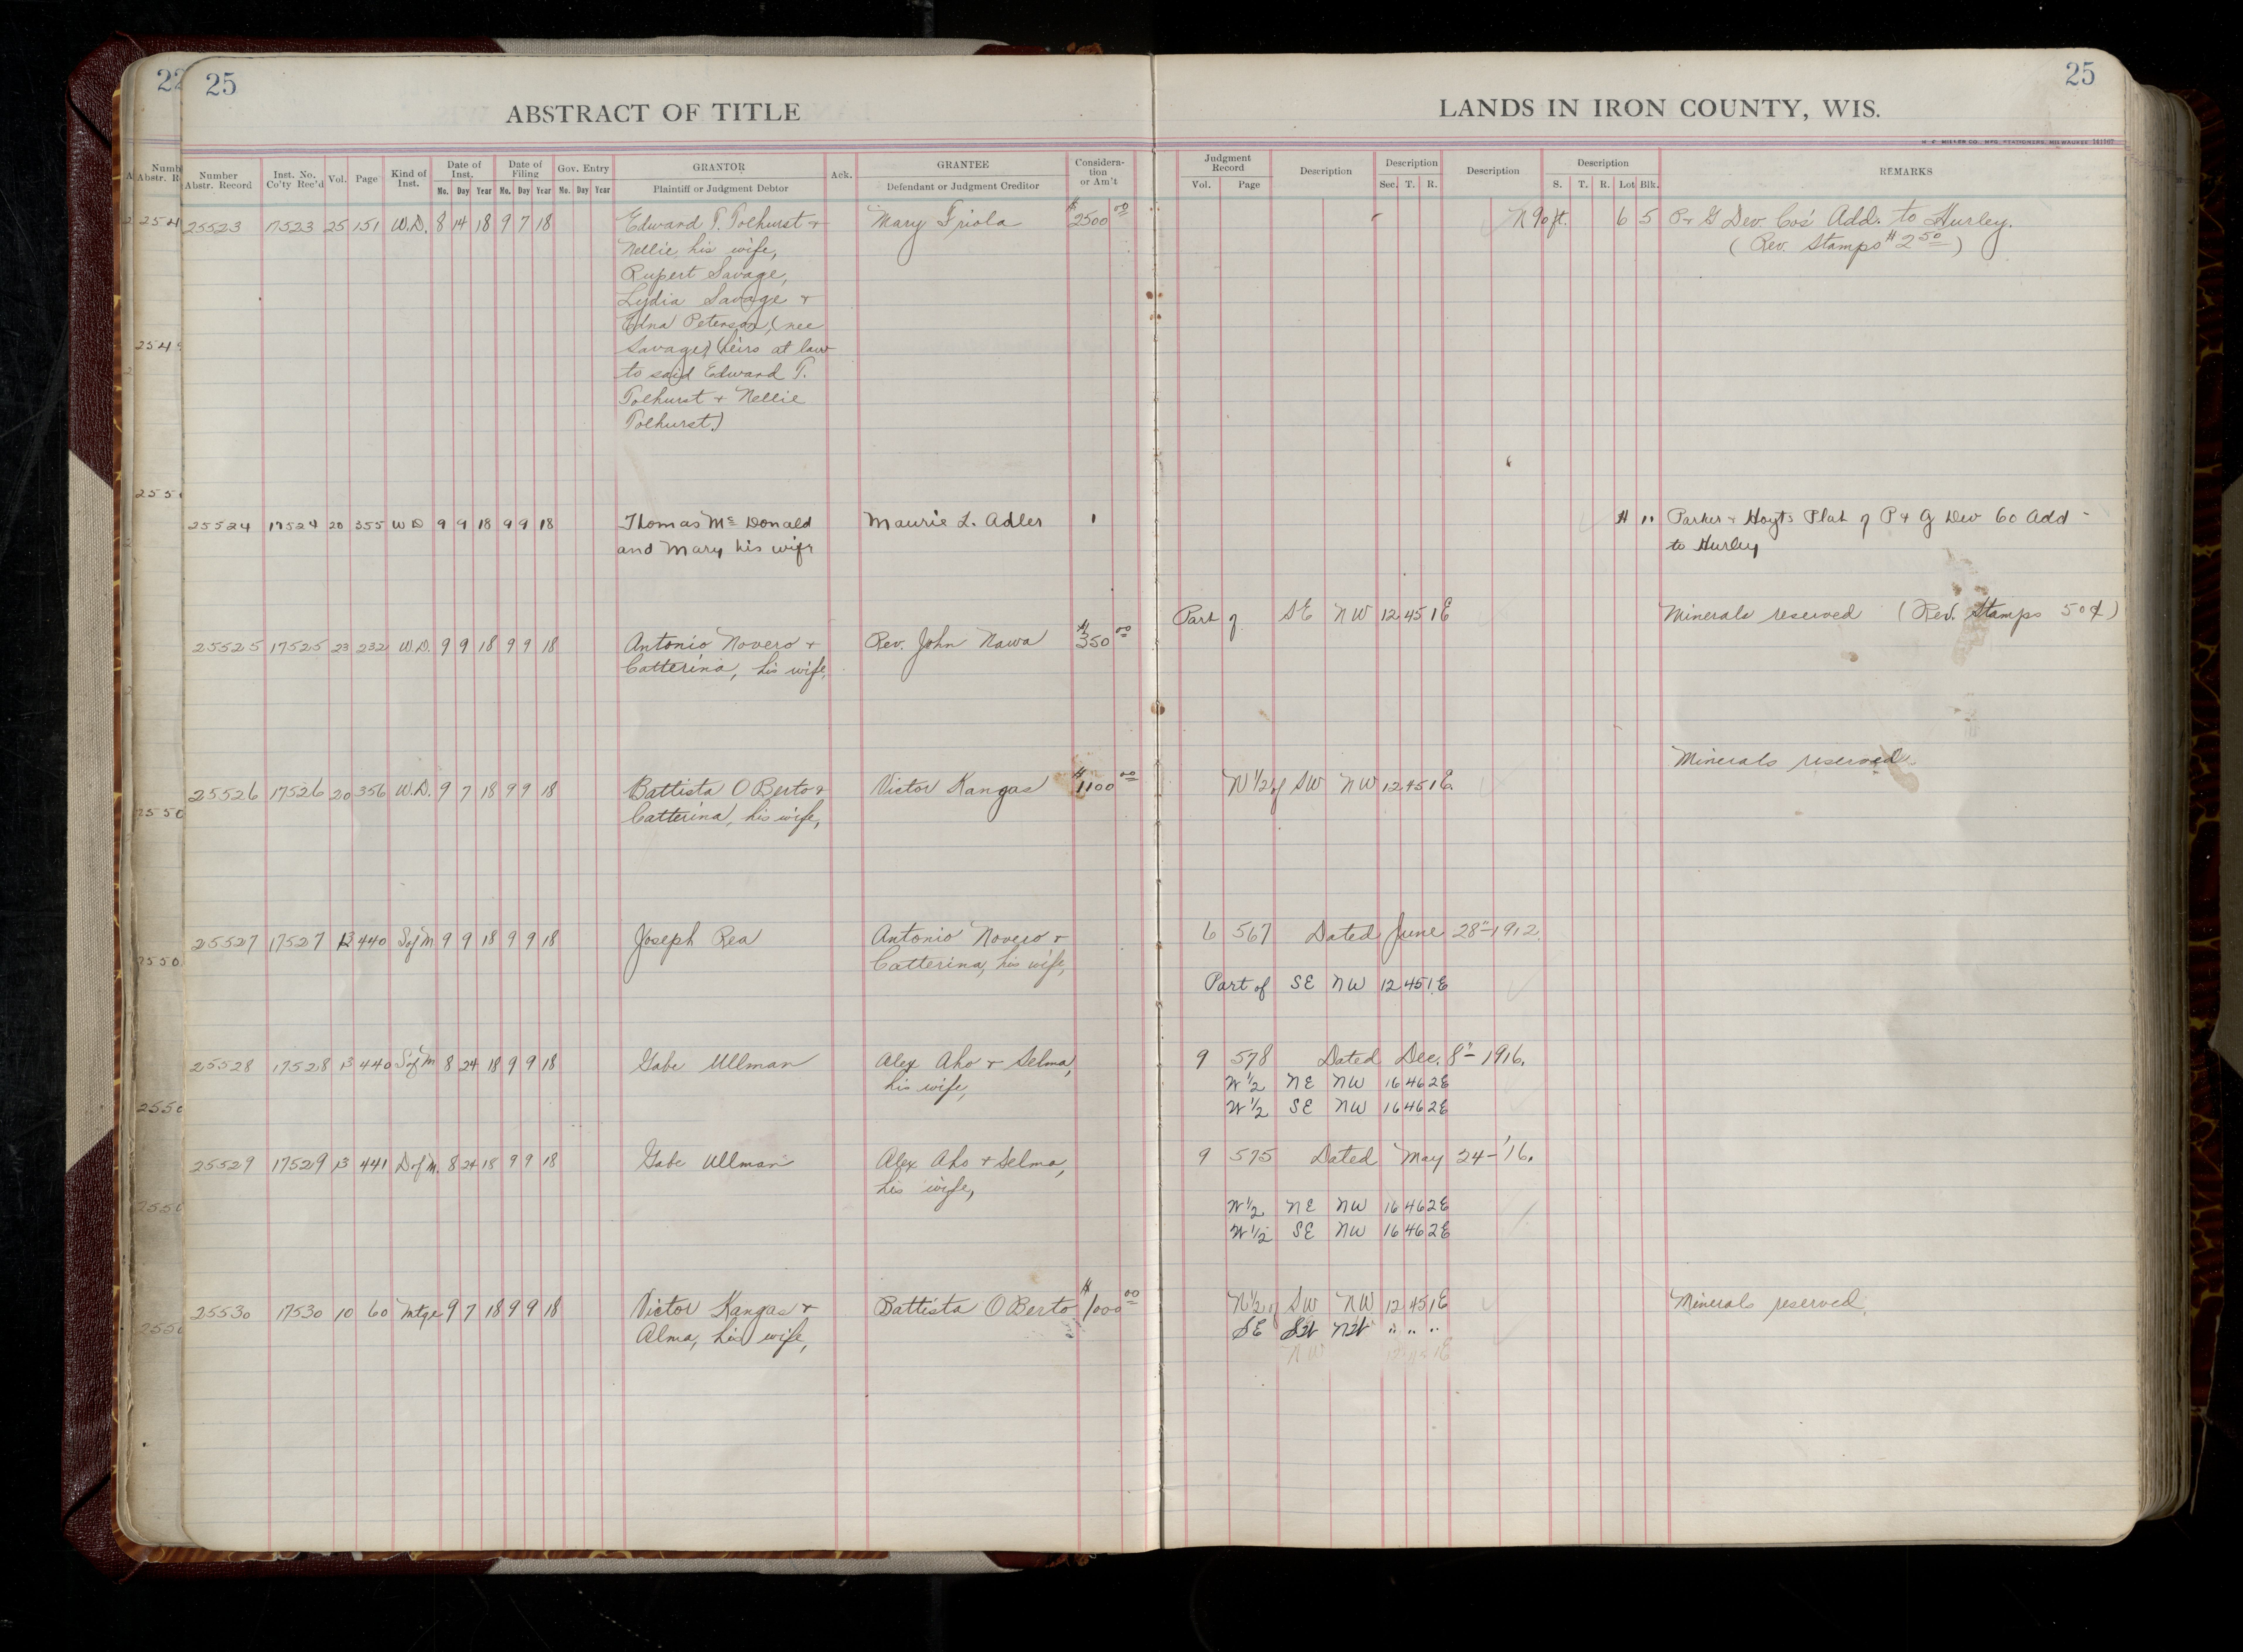 22 25
ABSTRACT OF TITLE
Number Abstr. Record Inst. No. Co'ty Rec'd Vol. Page Kind of Inst. Date of Inst. Mo. Day Year Date of Filing Mo. Day Year Gov. Entry Mo. Day Year GRANTOR Plaintiff or Judgment Debtor Ack. GRANTEE Defendant or Judgment Creditor Considera-tion or Am't
25523 17523 25 151 W.D. 8 14 18 9 7 18 Edward T. Tolhurst + Mary Friola $2500 00
Nellie his wife,
Rupert Savage,
Lydia Savage +
Edna Peterson, (nee
Savage) (heirs at law
to said Edward T.
Tolhurst + Nellie
Tolhurst)
25524 17524 20 355 W D 9 9 18 9 9 18 Thomas Mc Donald Maurie L. Adler 1
and Mary his wife
25525 17525 23 232 W.D. 9 9 18 9 9 18 Antonio Novero + Rev. John Nawa $350 00
Catterina, his wife,
25526 17526 20 356 W.D. 9 7 18 9 9 18 Battista O Berto + Victor Kangas $1100 00
Catterina, his wife,
25527 17527 13 440 S of M 9 9 18 9 9 18 Joseph Rea Antonio Novero +
Catterina, his wife,
25528 17528 13 440 S of M 8 24 18 9 9 18 Gabe Ullman Alex Aho + Selma,
his wife,
25529 17529 13 441 D of M. 8 24 18 9 9 18 Gabe Ullman Alex Aho + Selma,
his wife,
25530 17530 10 60 Mtge 9 7 18 9 9 18 Victor Kangas + Battista O Berto $1000 00
Alma, his wife,
25
LANDS IN IRON COUNTY, WIS.
H. C. MILLER CO. MFG. STATIONERS, MILWAUKEE
Judgment Record Vol. Page Description Description Sec. T. R. Description Description S. T. R. Lot Blk. REMARKS
N 90 ft. 6 5 P + G Dev. Cos' Add. to Hurley.
(Rev. Stamps $2 50)
4 11 Parker + Hoyt's Plat of P + G Dev Co Add
to Hurley
Part of SE NW 12 45 1E Minerals reserved (Rev. Stamps 50¢)
Minerals reserved
N 1/2 of SW NW 12 45 1E.
6 567 Dated June 28"-1912.
Part of SE NW 12 45 1E
9 578 Dated Dec. 8"-1916.
W 1/2 NE NW 16 46 2E
W 1/2 SE NW 16 46 2E
9 575 Dated May 24-'16.
W 1/2 NE NW 16 46 2E
W 1/2 SE NW 16 46 2E
N 1/2 of SW NW 12 45 1E Minerals reserved.
SE SW NW " " "